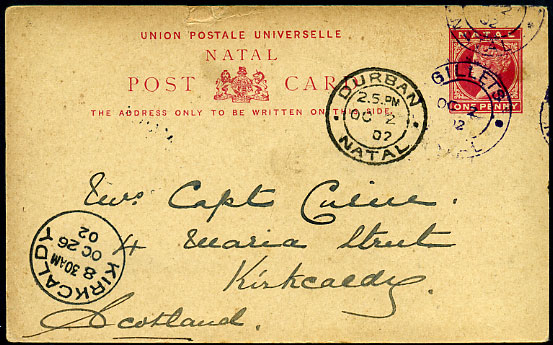 UNION POSTALE UNIVERSELLE
NATAL
POST CARD
THE ADDRESS ONLY TO BE WRITTEN ON THE SIDE.
NATAL
ONE PENNY
02
GILLETTS
OC
02
DURBAN
2.5.PM
OC 2
02
NATAL
Mrs Capt Currie.
4 Maria Street
Kirkcaldy.
Scotland.
KIRKCALDY
8 30AM
OC 26
02